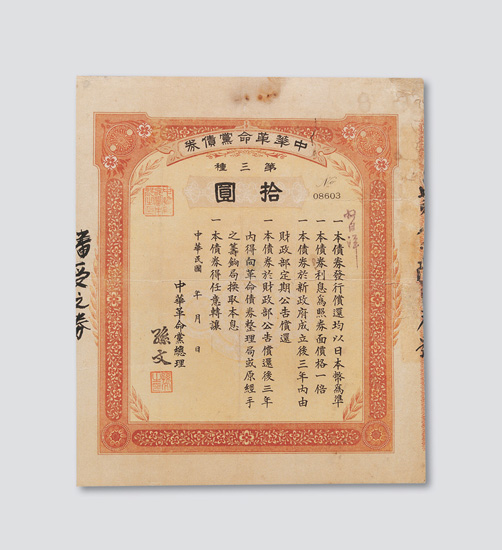 中華革命黨債券
第三種
拾圓
No
08603
一本債券發行償還均以日本幣爲準
一本債券利息爲照券面價格一倍
一本債券於新政府成立後三年內由
財政部定期公告償還
一本債券於財政部公告償還後三年
內得向革命債券整理局或原經手
之籌餉局換取本息
一本債券得任意轉讓
中華民國 年 月 日
中華革命黨總理
孫文